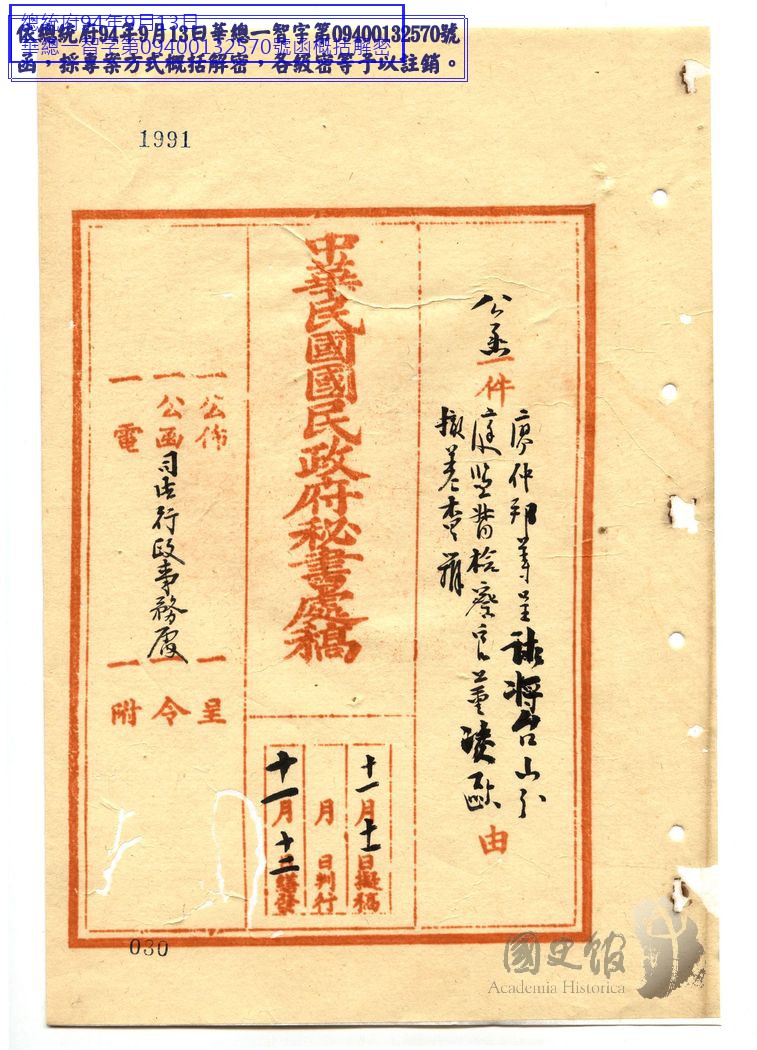 總統府94年9月13日
華總一智字第09400132570號函概括解密
依總統府94年9月13日華總一智字第09400132570號
函，採專案方式概括解密，各級密等予以註銷。
1991
公函一件
廖仲邦等呈請將台山分
庭監督檢察官董凌歐
撤差查辦
由
中華民國國民政府秘書處稿
十一月十一日擬稿
月 日判行
十一月十二日繕發
一公佈 一呈
一公函 司法行政事務處 一令
一電 一附
030
國史館
Academia Historica